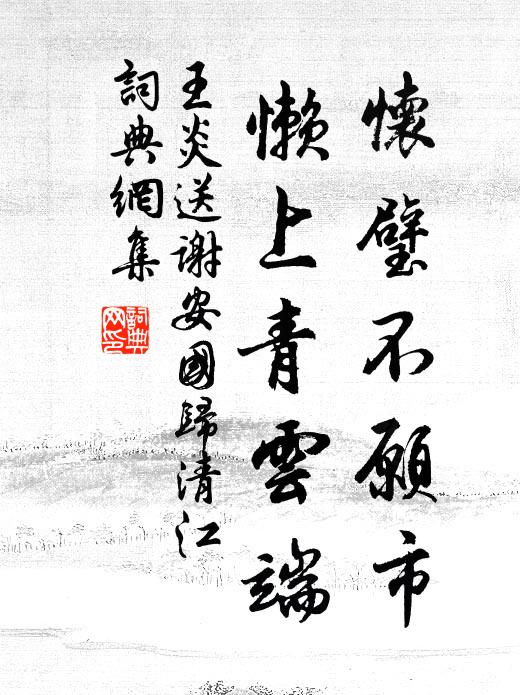 懷璧不願市
懶上青雲端
王炎送謝安國歸清江
詞典網集
詞典网印